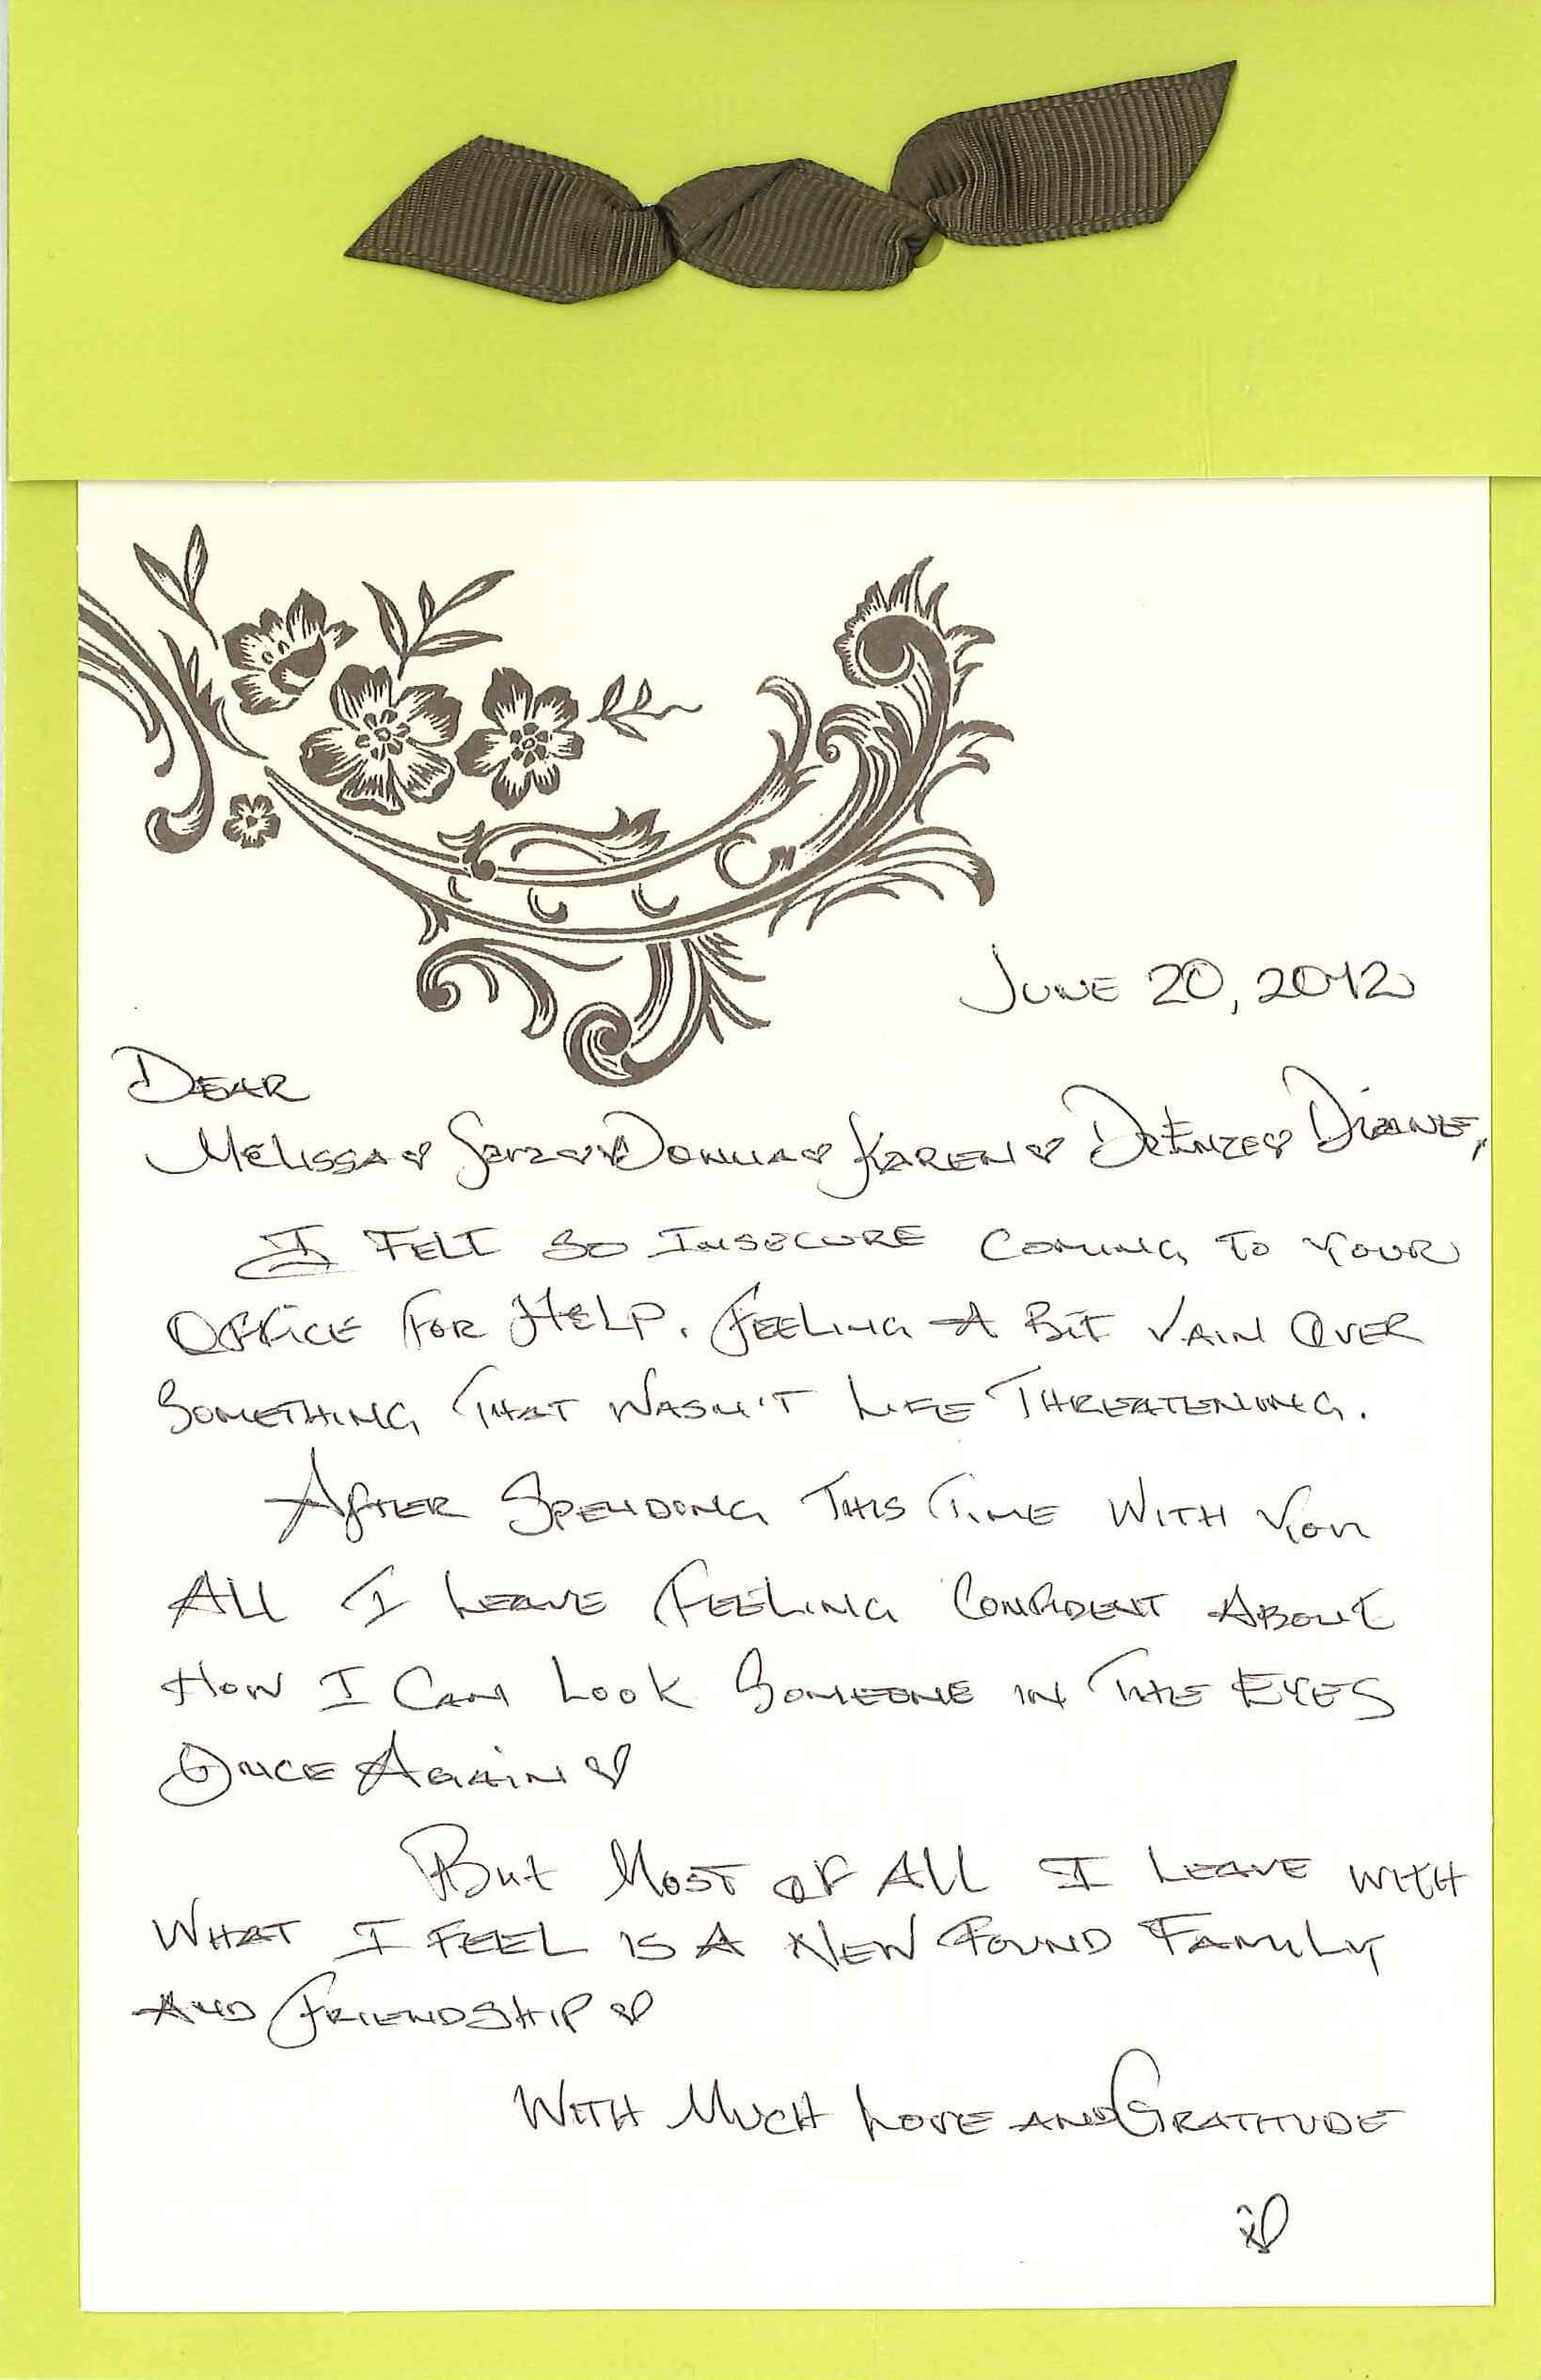 June 20, 2012
Dear
Melissa ♡ Sara ♡ Donna ♡ Karen ♡ Dr Enze ♡ Diane,
I felt so insecure coming to your
office for help. Feeling a bit vain over
something that wasn't life threatening.
After spending this time with you
all I leave feeling confident about
how I can look someone in the eyes
once again ♡
But most of all I leave with
what I feel is a new found family
and friendship ♡
With much love and gratitude